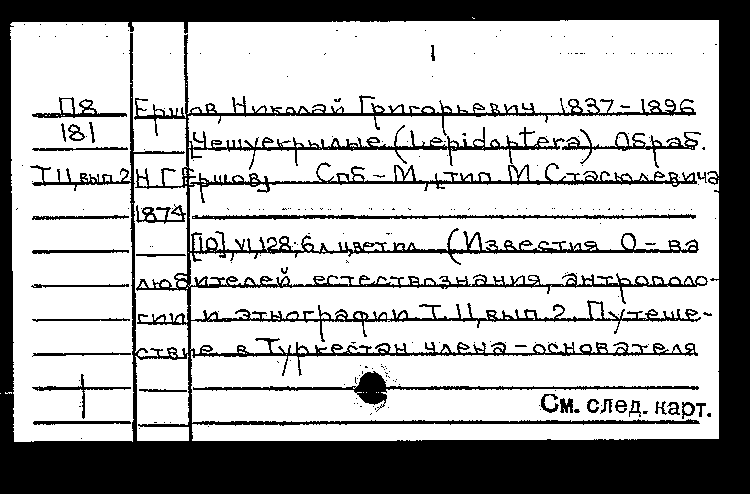 1
П8 Ершов, Николай Григорьевич, 1837-1896
181 Чешуекрылые (Lepidoptera). Обраб.
Т. II, вып. 2 Н. Г. Ершов, Спб-М., тип. М. Стасюлевича,
1874
[10], VI, 128; 6 л. цвет. ил. (Известия О-ва
любителей естествознания, антрополо-
гии и этнографии Т. II, вып. 2. Путеше-
ствие в Туркестан члена-основателя
См. след. карт.